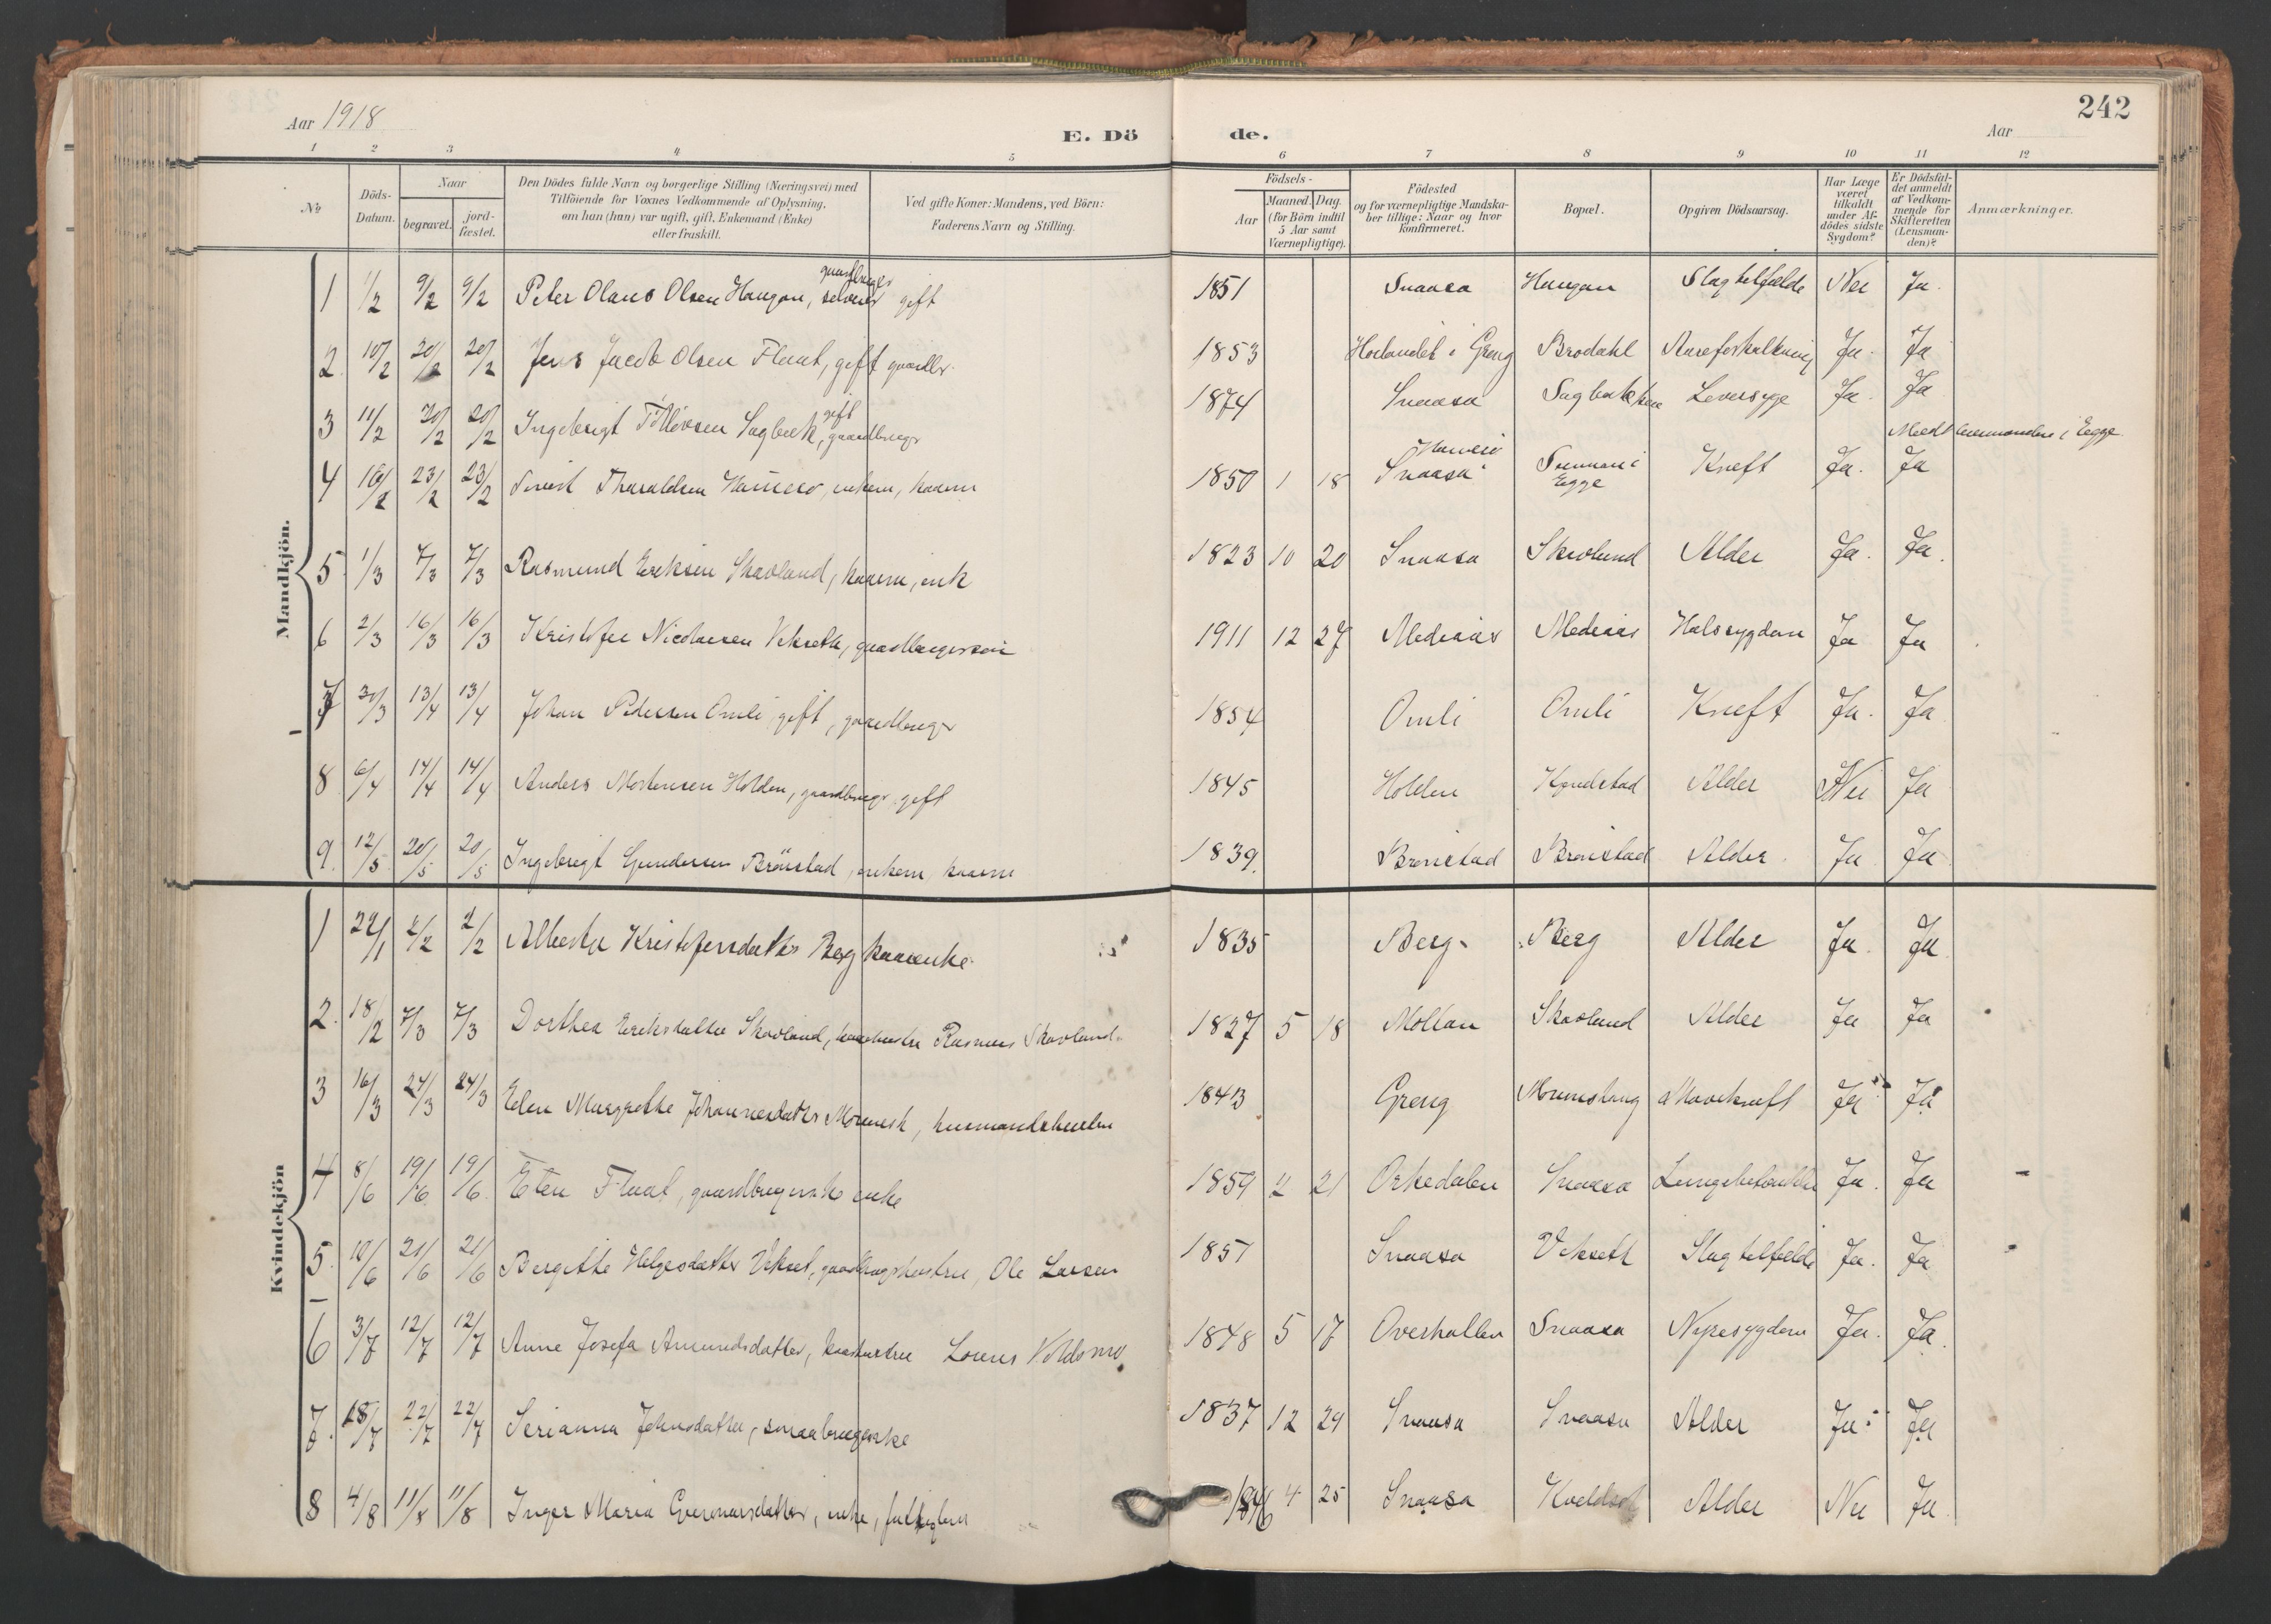 242
Aar 1918
E. Dö de.
Aar
1 2 3 4 5 6 7 8 9 10 11 12
No
Döds-Datum.
Naar
begravet.
jord-fæstet.
Den Dödes fulde Navn og borgerlige Stilling (Næringsvei) med
Tilföiende for Voxnes Vedkommende af Oplysning,
om han (hun) var ugift, gift, Enkemand (Enke)
eller fraskilt.
Ved gifte Koner: Mandens, ved Börn:
Faderens Navn og Stilling.
Födsels-
Aar
Maaned. Dag.
(for Börn indtil
5 Aar samt
Værnepligtige).
Födested
og for værnepligtige Mandska-
ber tillige: Naar og hvor
konfirmeret.
Bopæl.
Opgiven Dödsaarsag.
Har Læge
været
tilkaldt
under Af-
dödes sidste
Sygdom?
Er Dödsfal-
det anmeldt
af Vedkom-
mende for
Skifteretten
(Lensman-
den)?
Anmærkninger.
Mandkjön.
1 1/2 9/2 9/2 Peter Olaus Olsen Haugan, gaardbruger selveier gift 1851 Snaasa Haugan Slagtilfælde Nei Ja.
2. 10/2 20/2 20/2 Jens Jacob Olsen Flaat, gift gaardbr. 1853 i Grong Brodahl Aareforkalkning Ja. Ja
3 11/2 20/2 20/2 Ingebrigt Sagbak, gift gaardbruger 1874 Snaasa Sagbakken Leversyge Ja. Ja
4 16/2 23/2 23/2 Tharaldsen enkem, kaarm 1850 1 18 Snaasa i Egge Kræft Ja. Ja Meldt lensmanden i Egge
5. 1/3 7/3 7/3 Rasmund Eriksen Skavland, kaarm, enk 1823 10 20 Snaasa Skavland Alder Ja. Ja.
6 2/3 16/3 16/3 Kristofer Nicolaisen Vekseth, gaardbrugersøn 1911 12 27 Mediaas Mediaas Halssygdom Ja Ja
7 30/3 13/4 13/4 Johan Pedersen Omli, gift, gaardbruger 1854 Omli Omli Kræft Ja. Ja
8 6/4 14/4 14/4 Anders Mortensen Holden, gaardbruger, gift 1845 Holden Alder Nei Ja
9. 12/5 20/5 20/5 Ingebrigt Gundersen Brönstad, enkem kaarm 1839. Brönstad Brönstad Alder. Ja Ja
Kvindekjön
1 22/1 2/2 2/2 Alberta Kristofersdatter Berg kaarenke. 1835 Berg. Berg Alder Ja. Ja
2. 18/2 7/3 7/3 Dorthea Eriksdatter Skavland, Rasmus Skavland. 1827 5 18 Mollan Skavland Alder Ja Ja
3 16/3 24/3 24/3 Elen Margrethe Johannesdatter 1843 Grong Mavekræft Ja Ja
4 8/6 19/6 19/6 Elen Flaat, gaardbrugerske enke 1859 2 21 Orkedalen Snaasa Ja. Ja
5. 10/6 21/6 21/6 Bergitte Helgesdatter Vekset, gaardbrugerhustru, Ole Larsen 1851 Snaasa Vekseth Slagtilfælde Ja. Ja
6 3/7 12/7 12/7 Anne Josefa Amundsdatter, kaarhustru Lorns Voldsmo 1848 5 17 Overhallen Snaasa Nyresygdom Ja. Ja.
7. 15/7 22/7 22/7 Serianna Johnsdatter, smaabrugerske 1837 12 29 Snaasa Snaasa Alder Ja Ja
8 4/8 11/8 11/8 Inger Maria Gunnarsdatter, enke, fattiglem 1846 4 25 Snaasa Alder Nei Ja